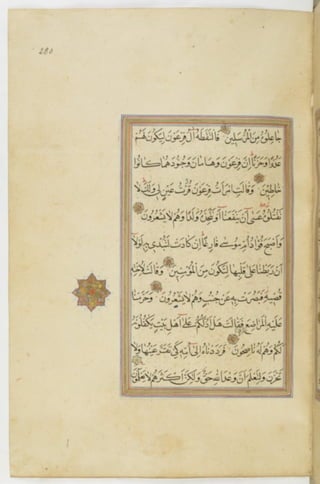 جَاعِلُوهُ مِنَ الْمُرْسَلِينَ فَالْتَقَطَهُ آلُ فِرْعَوْنَ لِيَكُونَ لَهُمْ
عَدُوًّا وَحَزَنًا إِنَّ فِرْعَوْنَ وَهَامَانَ وَجُنُودَهُمَا كَانُوا
خَاطِئِينَ وَقَالَتِ امْرَأَتُ فِرْعَوْنَ قُرَّتُ عَيْنٍ لِي وَلَكَ لَا
تَقْتُلُوهُ عَسَى أَنْ يَنْفَعَنَا أَوْ نَتَّخِذَهُ وَلَدًا وَهُمْ لَا يَشْعُرُونَ
وَأَصْبَحَ فُؤَادُ أُمِّ مُوسَى فَارِغًا إِنْ كَادَتْ لَتُبْدِي بِهِ لَوْلَا
أَنْ رَبَطْنَا عَلَى قَلْبِهَا لِتَكُونَ مِنَ الْمُؤْمِنِينَ وَقَالَتْ لِأُخْتِهِ
قُصِّيهِ فَبَصُرَتْ بِهِ عَنْ جُنُبٍ وَهُمْ لَا يَشْعُرُونَ وَحَرَّمْنَا
عَلَيْهِ الْمَرَاضِعَ فَقَالَتْ هَلْ أَدُلُّكُمْ عَلَى أَهْلِ بَيْتٍ يَكْفُلُونَهُ
لَكُمْ وَهُمْ لَهُ نَاصِحُونَ فَرَدَدْنَاهُ إِلَى أُمِّهِ كَيْ تَقَرَّ عَيْنُهَا وَلَا
تَحْزَنَ وَلِتَعْلَمَ أَنَّ وَعْدَ اللهِ حَقٌّ وَلَكِنَّ أَكْثَرَهُمْ لَا يَعْلَمُونَ